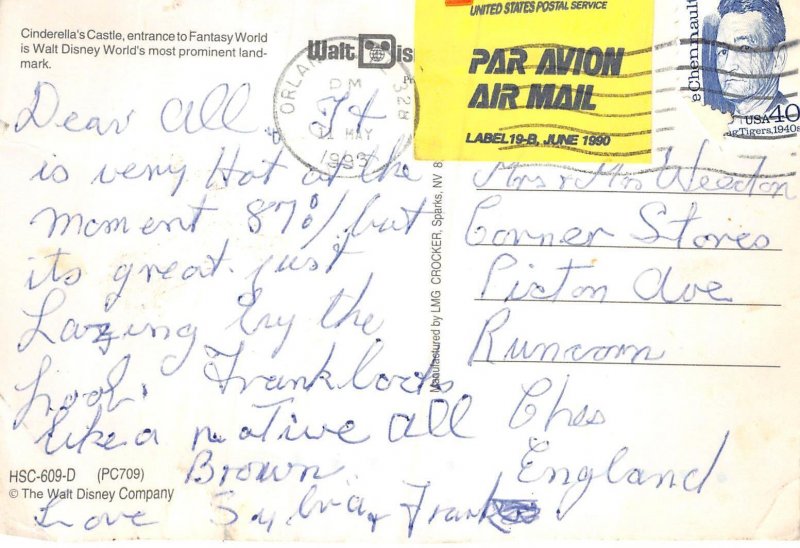 Cinderella's Castle, entrance to Fantasy World
is Walt Disney World's most prominent land-
mark.
Walt Dis
UNITED STATES POSTAL SERVICE
PAR AVION
AIR MAIL
LABEL 19-B, JUNE 1990
Chennault
USA 40
g Tigers, 1940s
ORLAN
PM
11 MAY
328
Dear All. It
is very Hot at the
moment 87% but
its great. just
Lazing by the
Pool. Frank looks
like a native all
Brown
Love Sylvia & Frank
Manufactured by LMG CROCKER, Sparks, NV 8
Mrs & Mrs Weedon
Corner Stores
Picton Ave
Runcorn
Ches
England
HSC-609-D (PC709)
© The Walt Disney Company